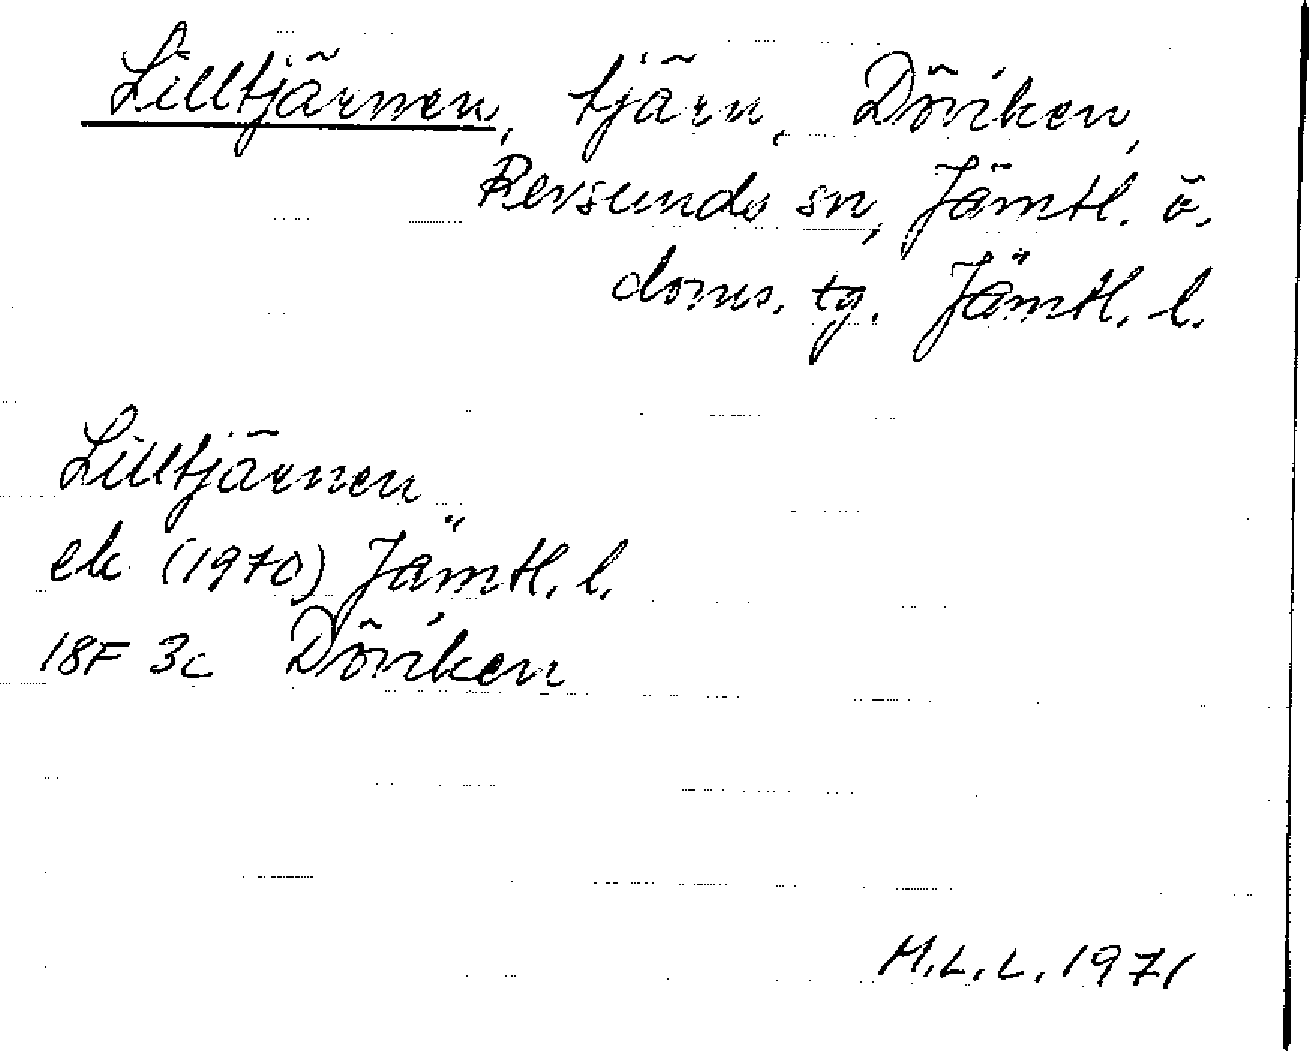 Lilltjärnen, tjärn, Döviken,
Revsunds sn, Jämtl. ö.
doms. tg. Jämtl. l.
Lilltjärnen
ek (1970) Jämtl. l.
18F 3c Döviken
M.L.L. 1971